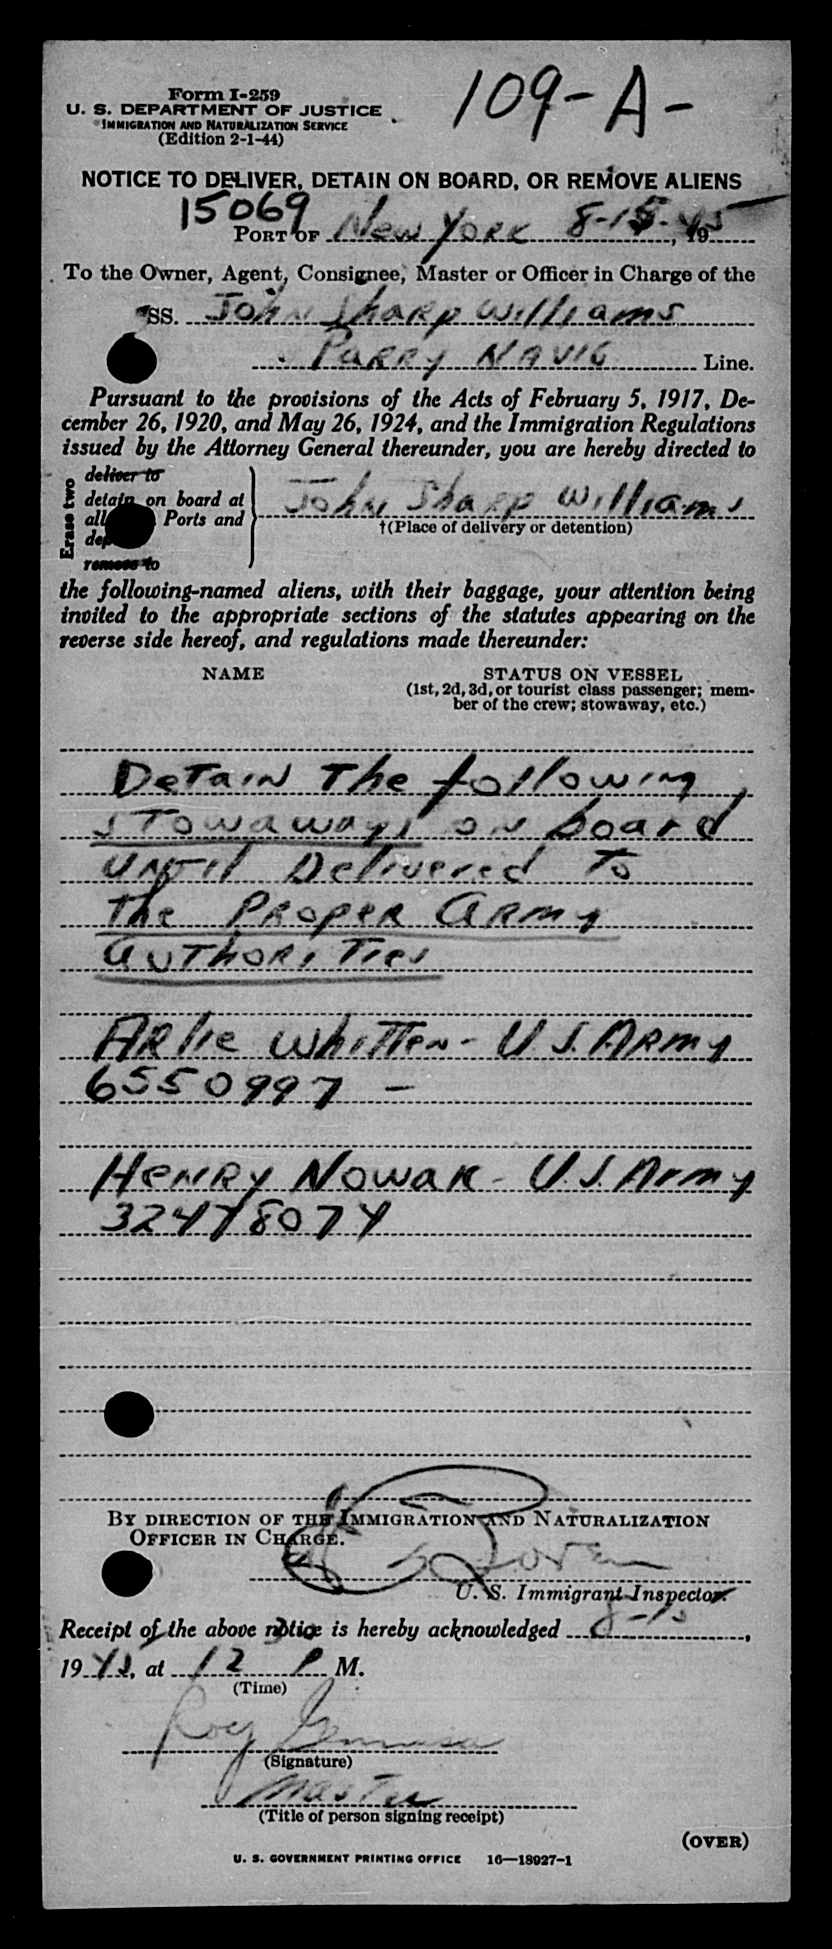 Form I-259
U. S. DEPARTMENT OF JUSTICE
IMMIGRATION AND NATURALIZATION SERVICE
(Edition 2-1-44)
109-A-
NOTICE TO DELIVER, DETAIN ON BOARD, OR REMOVE ALIENS
15069
PORT OF New York 8-15-45, 19
To the Owner, Agent, Consignee, Master or Officer in Charge of the
SS. John Sharp Williams
Parry Navig Line.
Pursuant to the provisions of the Acts of February 5, 1917, De-
cember 26, 1920, and May 26, 1924, and the Immigration Regulations
issued by the Attorney General thereunder, you are hereby directed to
Erase two
deliver to
detain on board at
all Ports and
remove to
John Sharp Williams
†(Place of delivery or detention)
the following-named aliens, with their baggage, your attention being
invited to the appropriate sections of the statutes appearing on the
reverse side hereof, and regulations made thereunder:
NAME STATUS ON VESSEL
(1st, 2d, 3d, or tourist class passenger; mem-
ber of the crew; stowaway, etc.)
Detain The following
stowaways on board
until Delivered To
The Proper Army
Authorities
Arlie Whitten - U S. Army
6550997 -
Henry Nowak - U.S. Army
32478074
BY DIRECTION OF THE IMMIGRATION AND NATURALIZATION
OFFICER IN CHARGE.
U. S. Immigrant Inspector.
Receipt of the above notice is hereby acknowledged 8-15,
1945, at 12 P M.
(Time)
Roy
(Signature)
Master
(Title of person signing receipt)
(OVER)
U. S. GOVERNMENT PRINTING OFFICE 16—18927-1